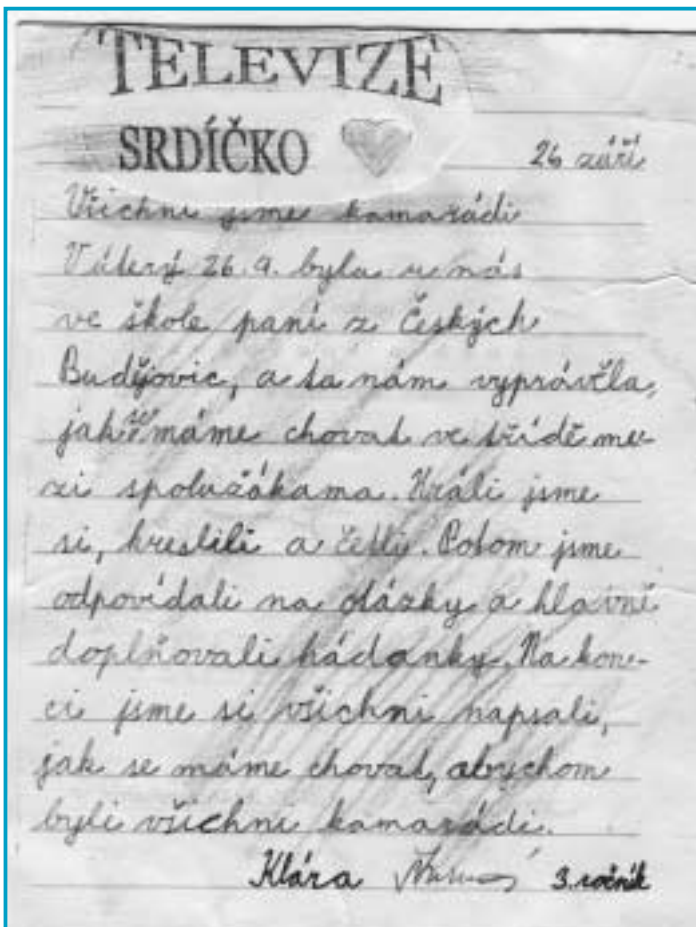 TELEVIZE
SRDÍČKO
26 září
Všichni jsme kamarádi
V úterý 26.9. byla u nás
ve škole paní z Českých
Budějovic, a ta nám vyprávěla,
jak se máme chovat ve třídě me-
zi spolužákama. Hráli jsme
si, kreslili a četli. Potom jsme
odpovídali na otázky a hlavně
doplňovali hádanky. Na kon-
ci jsme si všichni napsali,
jak se máme chovat, abychom
byli všichni kamarádi.
Klára 3. ročník